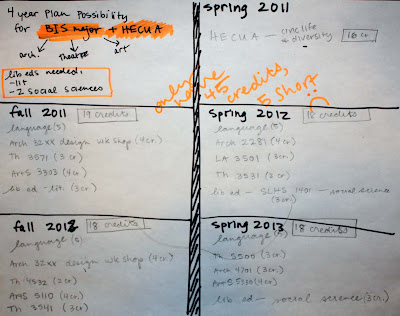 4 year Plan Possibility
for BIS major + HECUA
arch. theatre art
lib eds needed:
-lit
-2 social sciences
spring 2011
HECUA - civic life & diversity 16 cr.
only have 45 credits, 5 short
fall 2011 19 credits
language (5)
Arch 32XX design wkshop (4cr.)
Th 3571 (3cr.)
ArtS 3303 (4cr.)
lib ed - lit. (3cr.)
spring 2012 18 credits
language (5)
Arch 2281 (4cr.)
LA 3501 (3cr.)
Th 3531 (3cr.)
lib ed - SLHS 1401 - social science (3cr.)
fall 2012 18 credits
language (5)
Arch 32XX design wkshop (4cr.)
Th 4532 (2cr.)
ArtS 5110 (4cr.)
Th 3541 (3cr.)
spring 2013 18 credits
language (5)
Th 5500 (3cr.)
Arch 4701 (3cr.)
ArtS 5330 (4cr.)
lib ed - social science (3cr.)